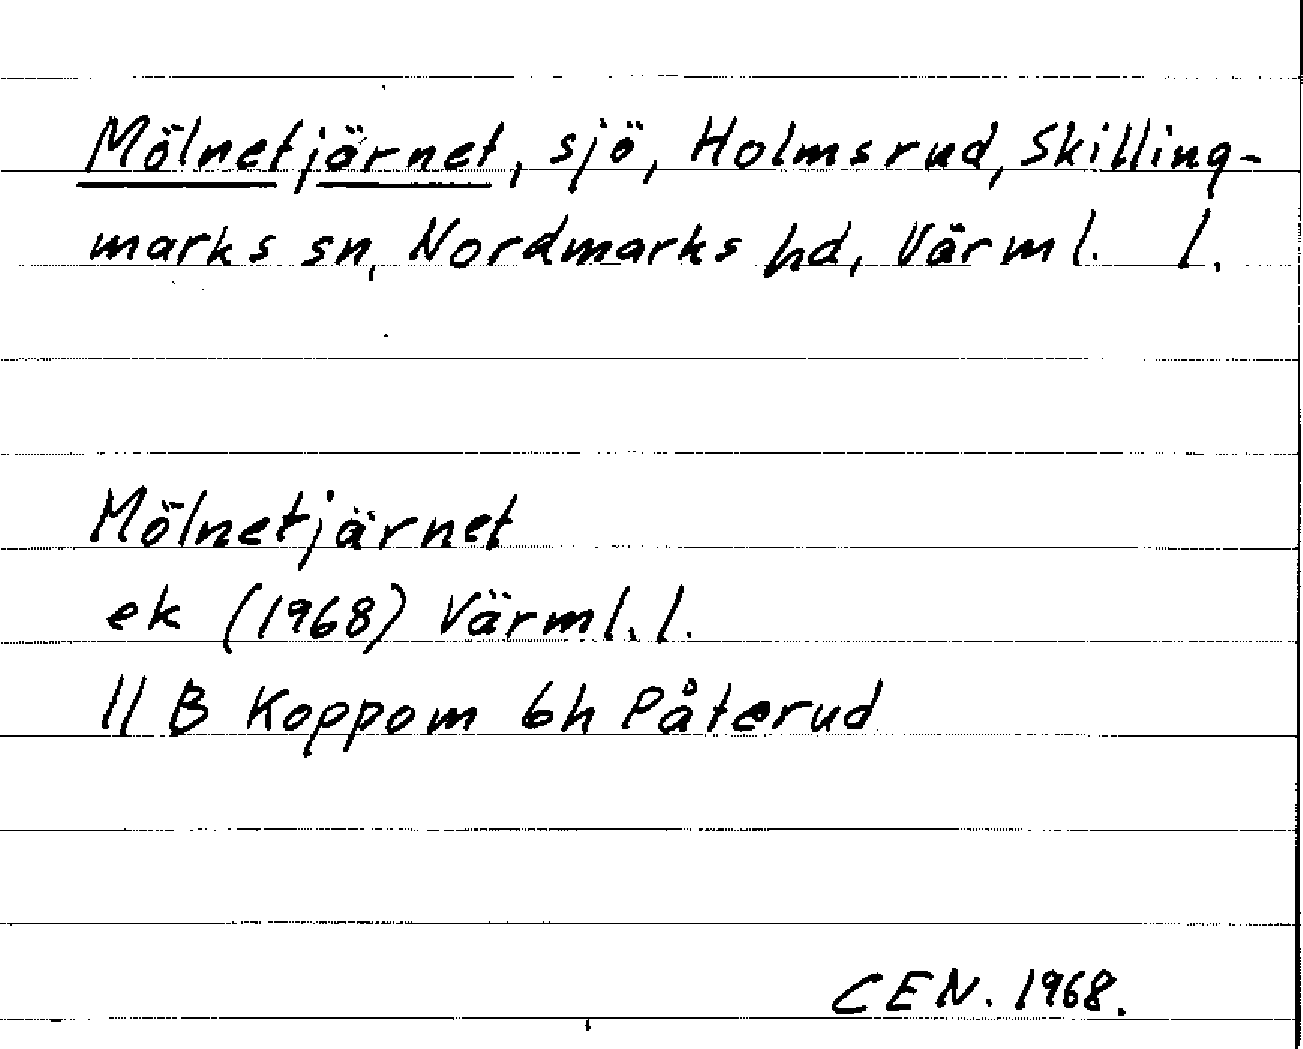 Mölnetjärnet, sjö, Holmsrud, Skilling-
marks sn, Nordmarks hd, Värml. l.
Mölnetjärnet
ek (1968) Värml. l.
11 B Koppom 6h Påterud
CEN. 1968.